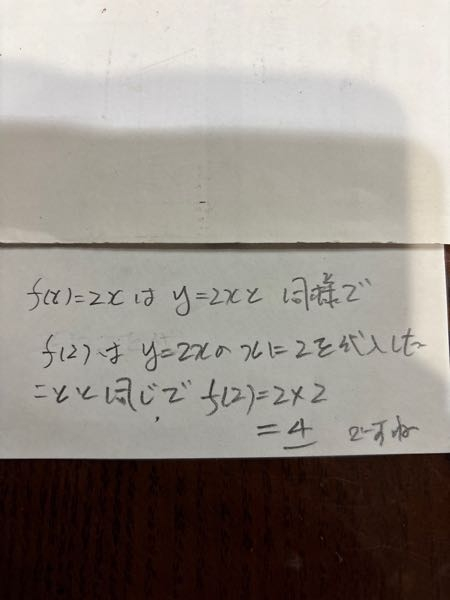 f(x)=2xは y=2xと 同様で
f(2)は y=2xのxに2を代入した
ことと同じで f(2)=2×2
=4 ですか